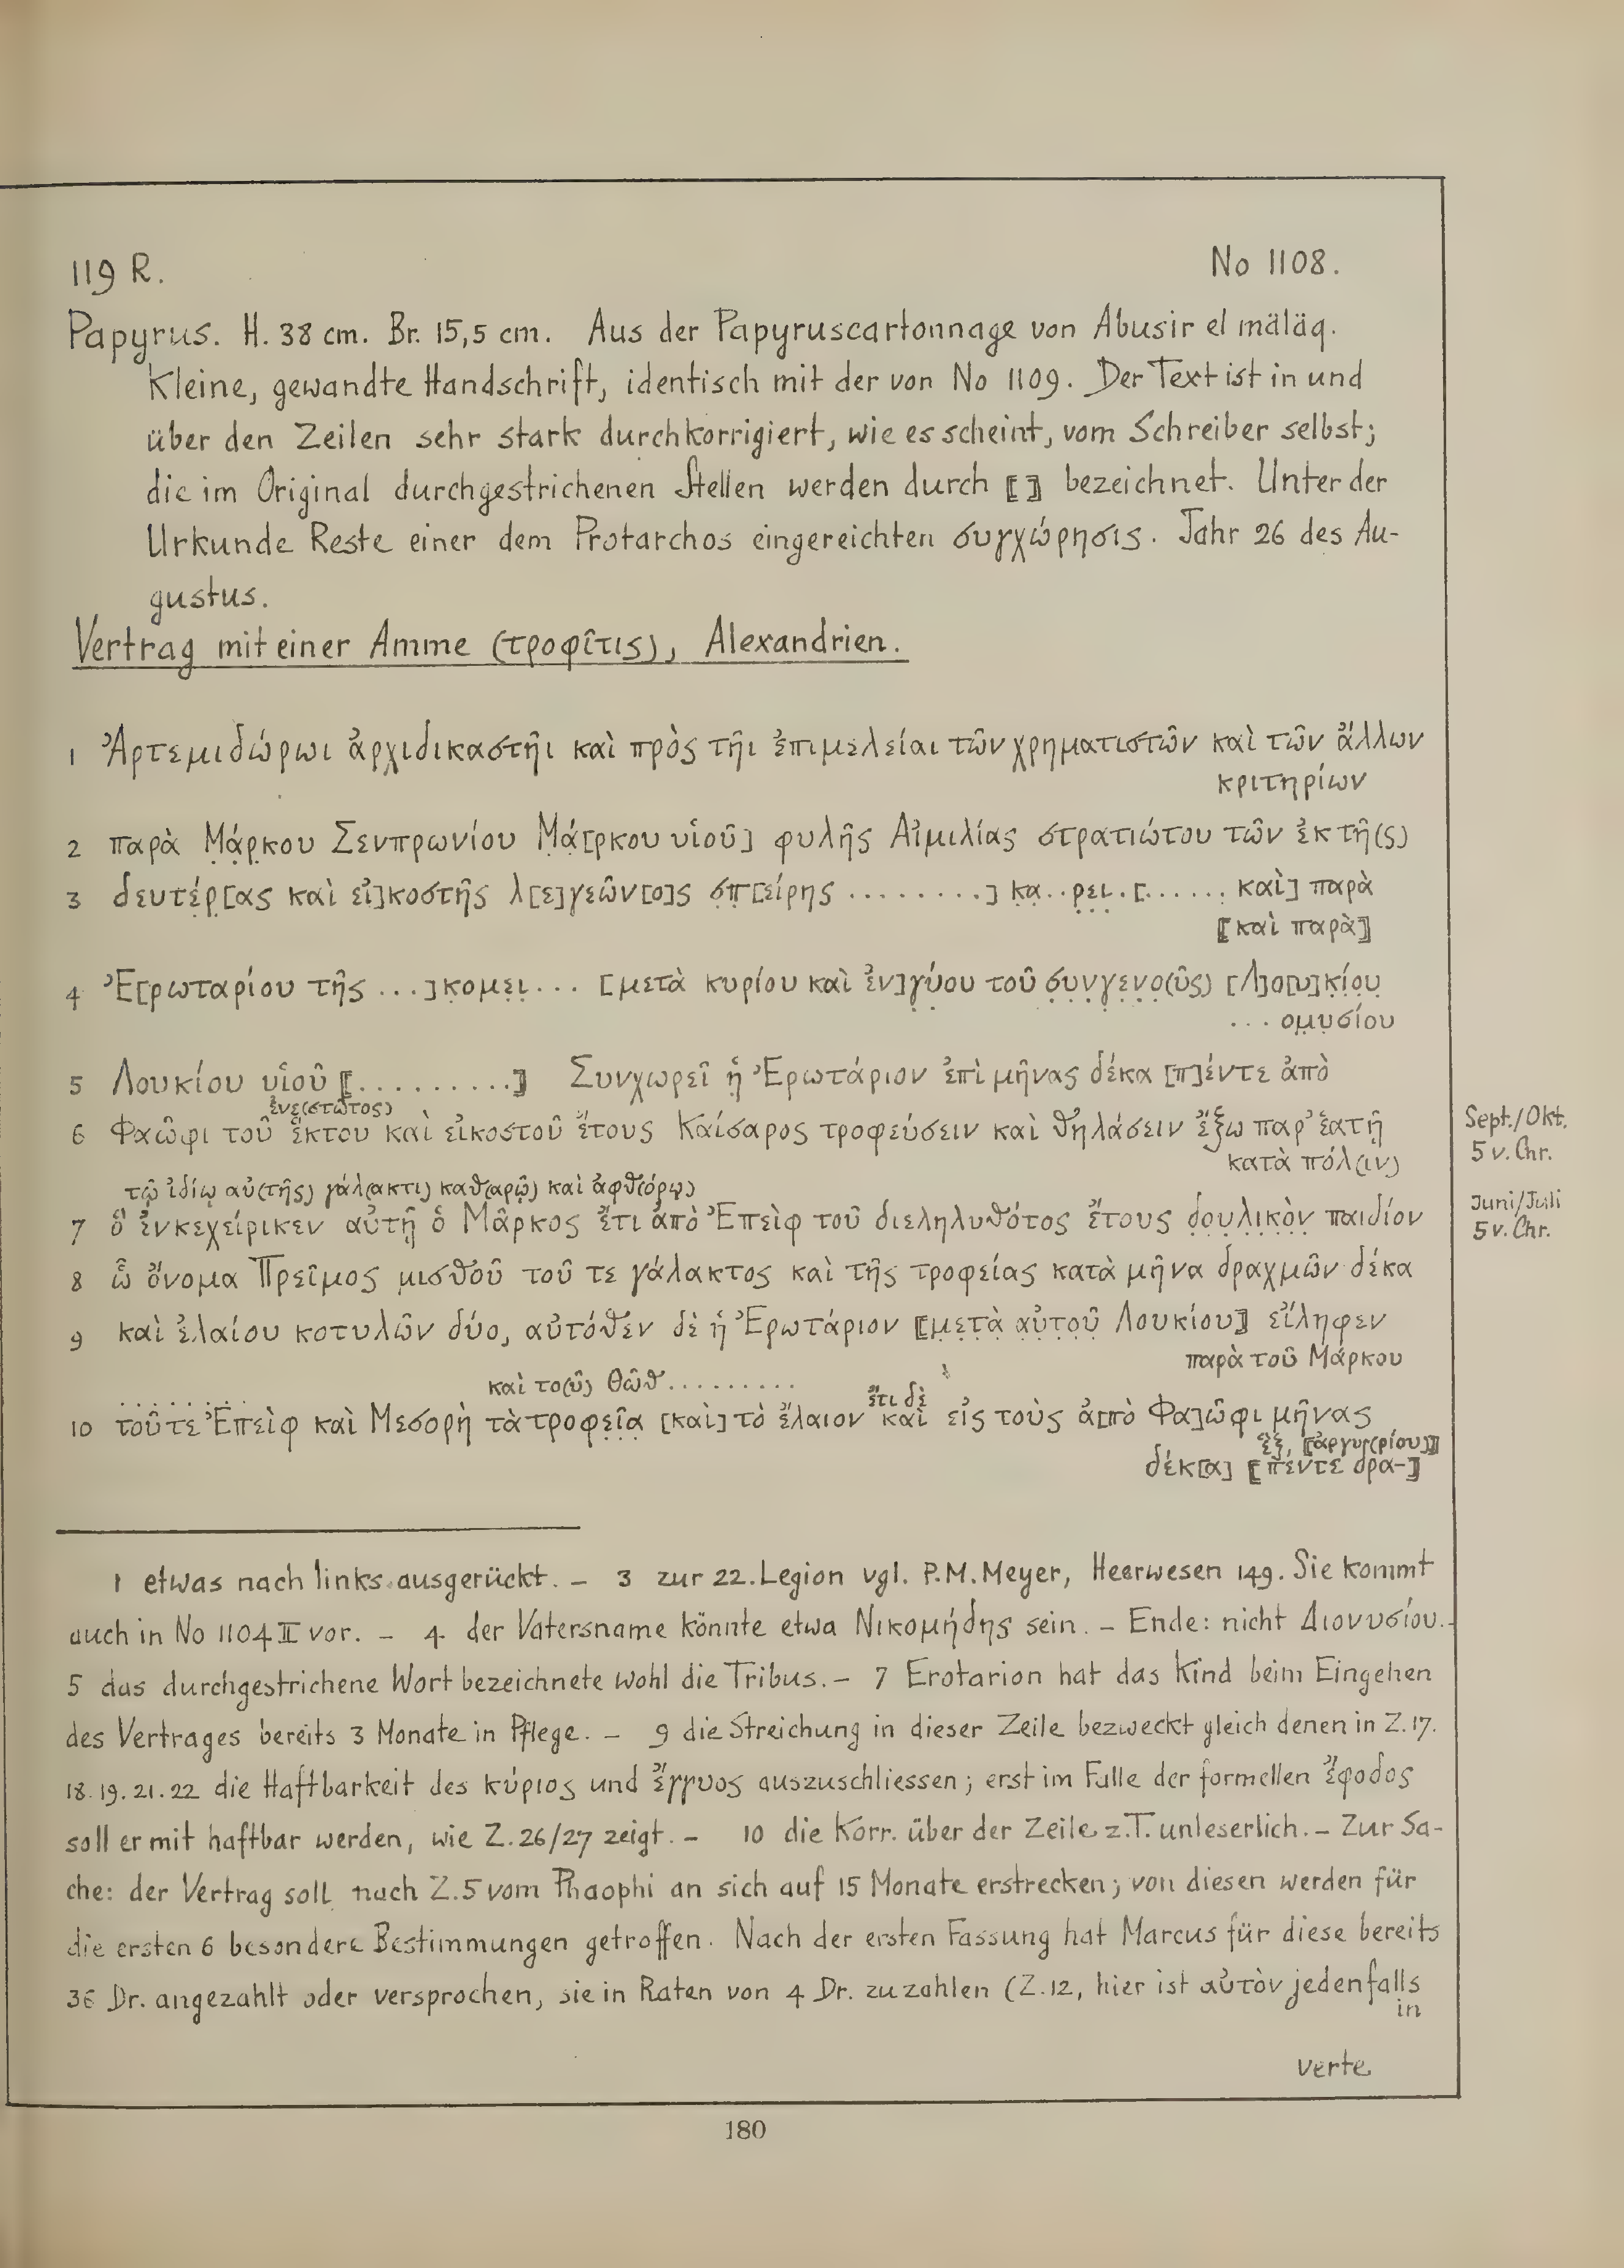 119 R.
No 1108.
Papyrus. H. 38 cm. Br. 15,5 cm. Aus der Papyruscartonnage von Abusir el mäläq.
Kleine, gewandte Handschrift, identisch mit der von No 1109. Der Text ist in und
über den Zeilen sehr stark durchkorrigiert, wie es scheint, vom Schreiber selbst;
die im Original durchgestrichenen Stellen werden durch ⟦ ⟧ bezeichnet. Unter der
Urkunde Reste einer dem Protarchos eingereichten συγχώρησις. Jahr 26 des Au-
gustus.
Vertrag mit einer Amme (τροφῖτις), Alexandrien.
1 Ἀρτεμιδώρωι ἀρχιδικαστῆι καὶ πρὸς τῆι ἐπιμελείαι τῶν χρηματιστῶν καὶ τῶν ἄλλων
κριτηρίων
2 παρὰ Μ̣ά̣ρ̣κου Σενπρωνίου Μ̣ά̣[ρκου υἱοῦ] φυλῆς Αἰμιλίας στρατιώτου τῶν ἐκ τῆ(ς)
3 δευτέ̣ρ̣[ας καὶ εἰ]κοστῆς λ[ε]γεῶν[ο]ς σ̣π̣[είρης .........] κ̣α̣..ρ̣ε̣ι̣.[...... καὶ] παρὰ
⟦καὶ παρὰ⟧
4 Ἐ[ρωταρίου τῆς ...]κ̣ομε̣ι̣... [μετὰ κυρίου καὶ ἐν]γ̣ύ̣ου τοῦ σ̣υ̣ν̣γ̣ε̣ν̣ο̣(ῦς) [Λ]ο[υ]κ̣ί̣ο̣υ̣
... ο̣μ̣υ̣σίου
5 Λουκίου υἱοῦ ⟦.........⟧ Συνχωρεῖ ἡ Ἐρωτάριον ἐπὶ μῆνας δέκα [π]έντε ἀπὸ
ἐνε(στῶτος)
6 Φαῶφι τοῦ ἕκτου καὶ εἰκοστοῦ ἔτους Καίσαρος τροφεύσειν καὶ θηλάσειν ἔξω παρ' ἑατῇ
κατὰ πόλ(ιν)
Sept./Okt.
5 v. Chr.
τῷ ἰδίῳ αὐ(τῆς) γάλ(ακτι) καθ(αρῷ) καὶ ἀφθ(όρῳ)
7 ὃ ἐνκεχείρικεν αὐτῇ ὁ Μᾶρκος ἔτι ἀπὸ Ἐπεὶφ τοῦ διεληλυθότος ἔτους δ̣ο̣υ̣λ̣ι̣κ̣ὸ̣ν̣ παιδίον
Juni/Juli
5 v. Chr.
8 ᾧ ὄνομα Πρεῖμος μισθοῦ τοῦ τε γάλακτος καὶ τῆς τροφείας κατὰ μῆνα δραχμῶν δέκα
9 καὶ ἐλαίου κοτυλῶν δύο, αὐτόθεν δὲ ἡ Ἐρωτάριον ⟦μ̣ε̣τ̣ὰ̣ α̣ὐ̣τ̣ο̣ῦ̣ Λουκίου⟧ εἴληφεν
παρὰ τοῦ Μάρκου
καὶ το(ῦ) Θῶθ.........
ἔτι δὲ
10 τοῦ τε Ἐπεὶφ καὶ Μεσορὴ τὰ τροφε̣ῖ̣α̣ [καὶ] τὸ ἔλαιον καὶ εἰς τοὺς ἀ[πὸ Φα]ῶφι μῆνας
ἓξ, ⟦ἀργυ(ρίου)⟧
δέκ[α] ⟦πέντε δρα-⟧
1 etwas nach links ausgerückt. – 3 zur 22. Legion vgl. P. M. Meyer, Heerwesen 149. Sie kommt
auch in No 1104 II vor. – 4 der Vatersname könnte etwa Νικομήδης sein. – Ende: nicht Διονυσίου. –
5 das durchgestrichene Wort bezeichnete wohl die Tribus. – 7 Erotarion hat das Kind beim Eingehen
des Vertrages bereits 3 Monate in Pflege. – 9 die Streichung in dieser Zeile bezweckt gleich denen in Z. 17.
18. 19. 21. 22 die Haftbarkeit des κύριος und ἔγγυος auszuschliessen; erst im Falle der formellen ἔφοδος
soll er mit haftbar werden, wie Z. 26/27 zeigt. – 10 die Korr. über der Zeile z. T. unleserlich. – Zur Sa-
che: der Vertrag soll nach Z. 5 vom Phaophi an sich auf 15 Monate erstrecken; von diesen werden für
die ersten 6 besondere Bestimmungen getroffen. Nach der ersten Fassung hat Marcus für diese bereits
36 Dr. angezahlt oder versprochen, sie in Raten von 4 Dr. zu zahlen (Z. 12, hier ist αὐτὸν jedenfalls
in
verte
180